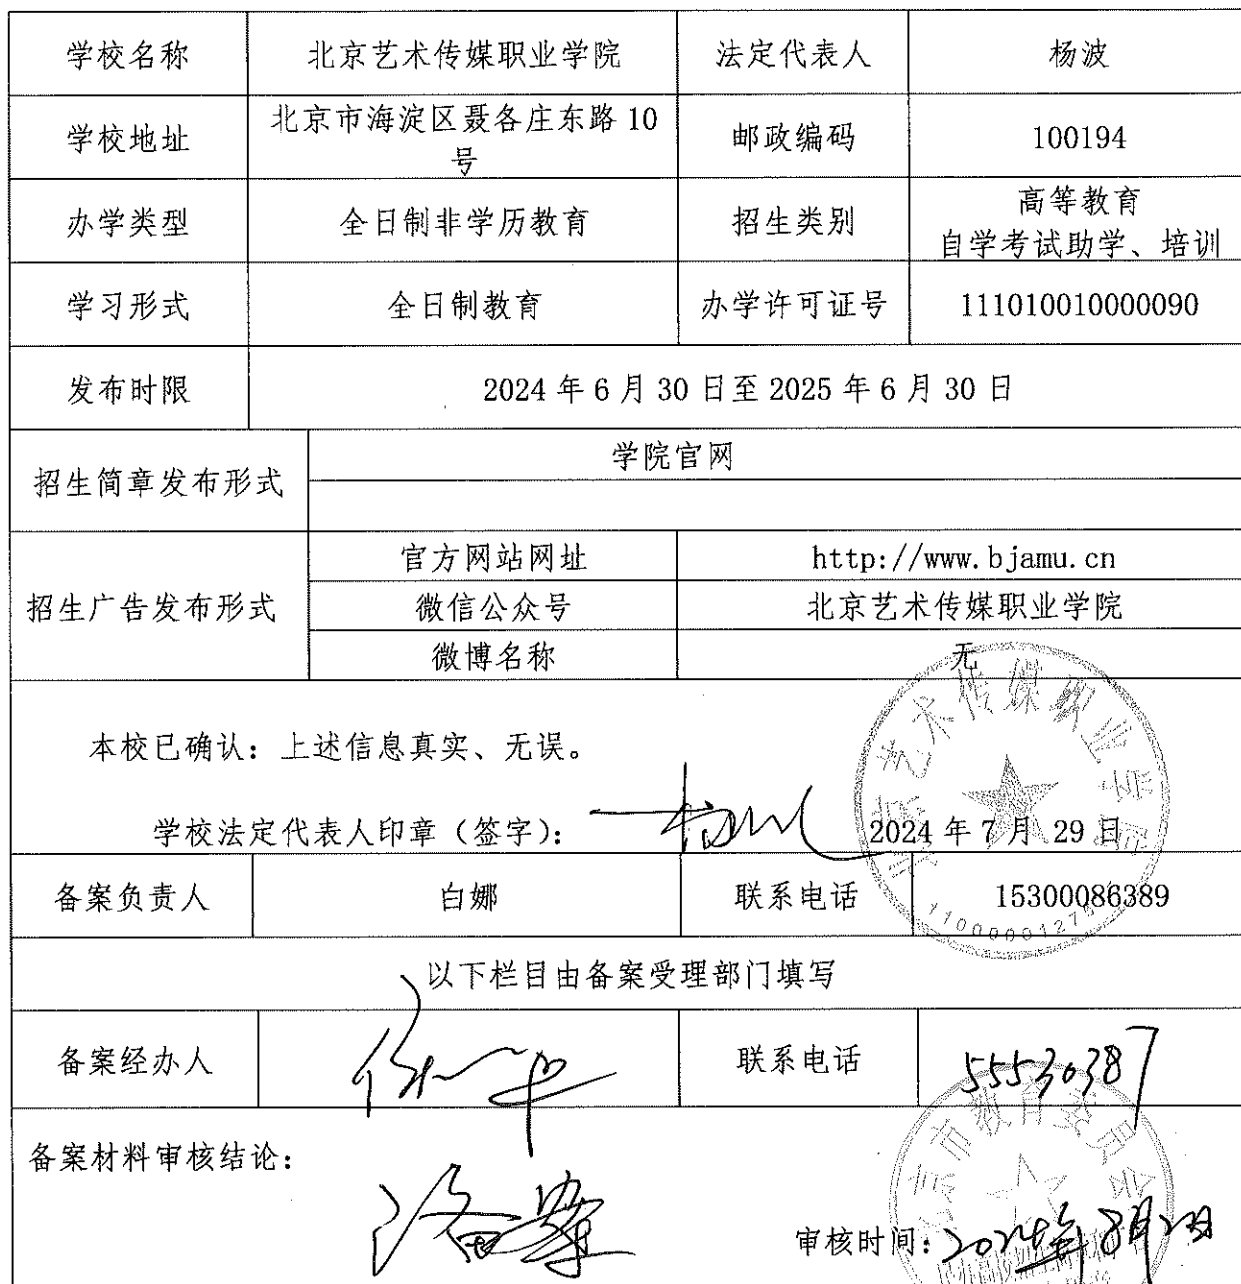 学校名称 北京艺术传媒职业学院 法定代表人 杨波
学校地址 北京市海淀区聂各庄东路 10 号 邮政编码 100194
办学类型 全日制非学历教育 招生类别 高等教育
自学考试助学、培训
学习形式 全日制教育 办学许可证号 111010010000090
发布时限 2024 年 6 月 30 日至 2025 年 6 月 30 日
招生简章发布形式 学院官网
招生广告发布形式 官方网站网址 http://www.bjamu.cn
微信公众号 北京艺术传媒职业学院
微博名称 无
北京艺术传媒职业学院
本校已确认：上述信息真实、无误。
学校法定代表人印章（签字）： 2024 年 7 月 29 日
备案负责人 白娜 联系电话 15300086389
以下栏目由备案受理部门填写
备案经办人 联系电话 55530387
北京市教育委员会
备案材料审核结论：
准备案
审核时间：2024年8月2日